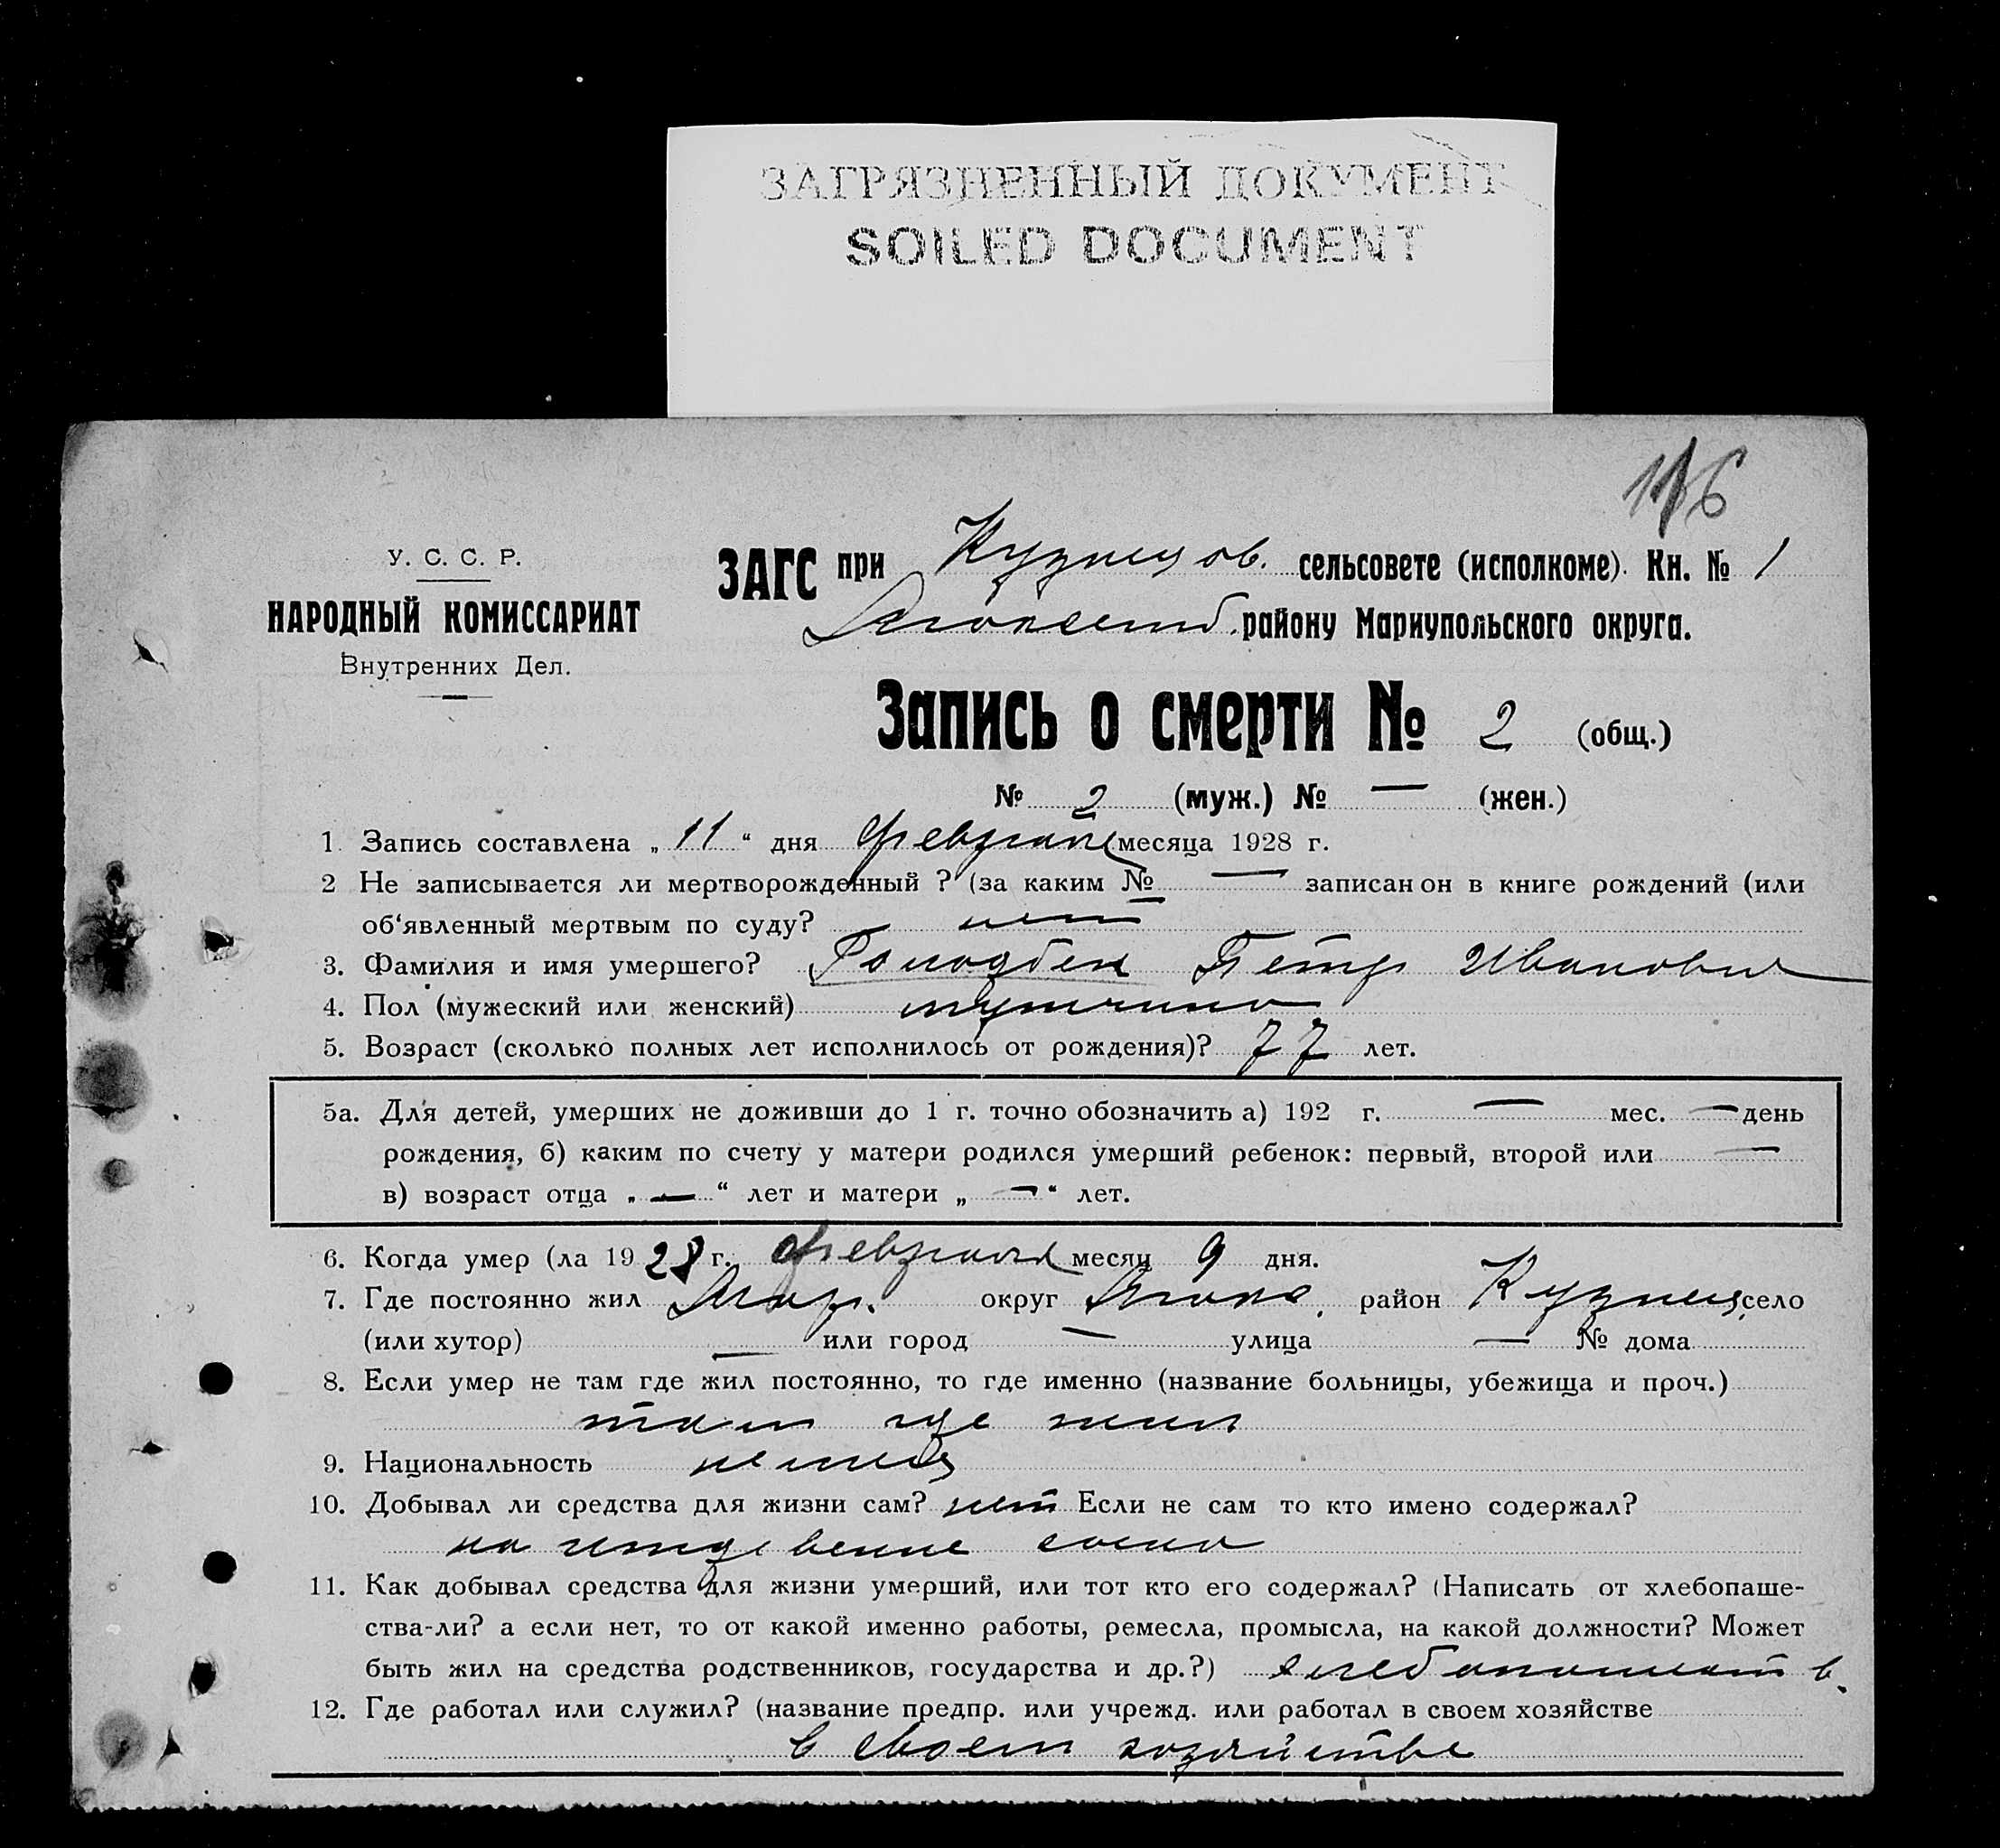 ЗАГРЯЗНЕННЫЙ ДОКУМЕНТ
SOILED DOCUMENT
116
У. С. С. Р.
НАРОДНЫЙ КОМИССАРИАТ
Внутренних Дел.
ЗАГС при Кузнецов. сельсовете (исполкоме). Кн. № 1
району Мариупольского округа.
Запись о смерти № 2 (общ.)
№ 2 (муж.) № — (жен.)
1. Запись составлена „ 11 “ дня февраля месяца 1928 г.
2 Не записывается ли мертворожденный ? (за каким № — записан он в книге рождений (или
об‘явленный мертвым по суду? нет
3. Фамилия и имя умершего? Петр Иванович
4. Пол (мужеский или женский) мужчина
5. Возраст (сколько полных лет исполнилось от рождения)? 77 лет.
5а. Для детей, умерших не доживши до 1 г. точно обозначить а) 192 г. — мес. — день
рождения, б) каким по счету у матери родился умерший ребенок: первый, второй или —
в) возраст отца „ — “ лет и матери „ — “ лет.
6. Когда умер (ла 19 28 г. февраля месяц 9 дня.
7. Где постоянно жил Мар. округ район Кузнец. село
(или хутор) — или город — улица — № дома
8. Если умер не там где жил постоянно, то где именно (название больницы, убежища и проч.)
там где жил
9. Национальность немец
10. Добывал ли средства для жизни сам? нет Если не сам то кто имено содержал?
на иждевение сына
11. Как добывал средства для жизни умерший, или тот кто его содержал? (Написать от хлебопаше-
ства-ли? а если нет, то от какой именно работы, ремесла, промысла, на какой должности? Может
быть жил на средства родственников, государства и др.?) хлебопашеств.
12. Где работал или служил? (название предпр. или учрежд. или работал в своем хозяйстве
в своем хозяйстве